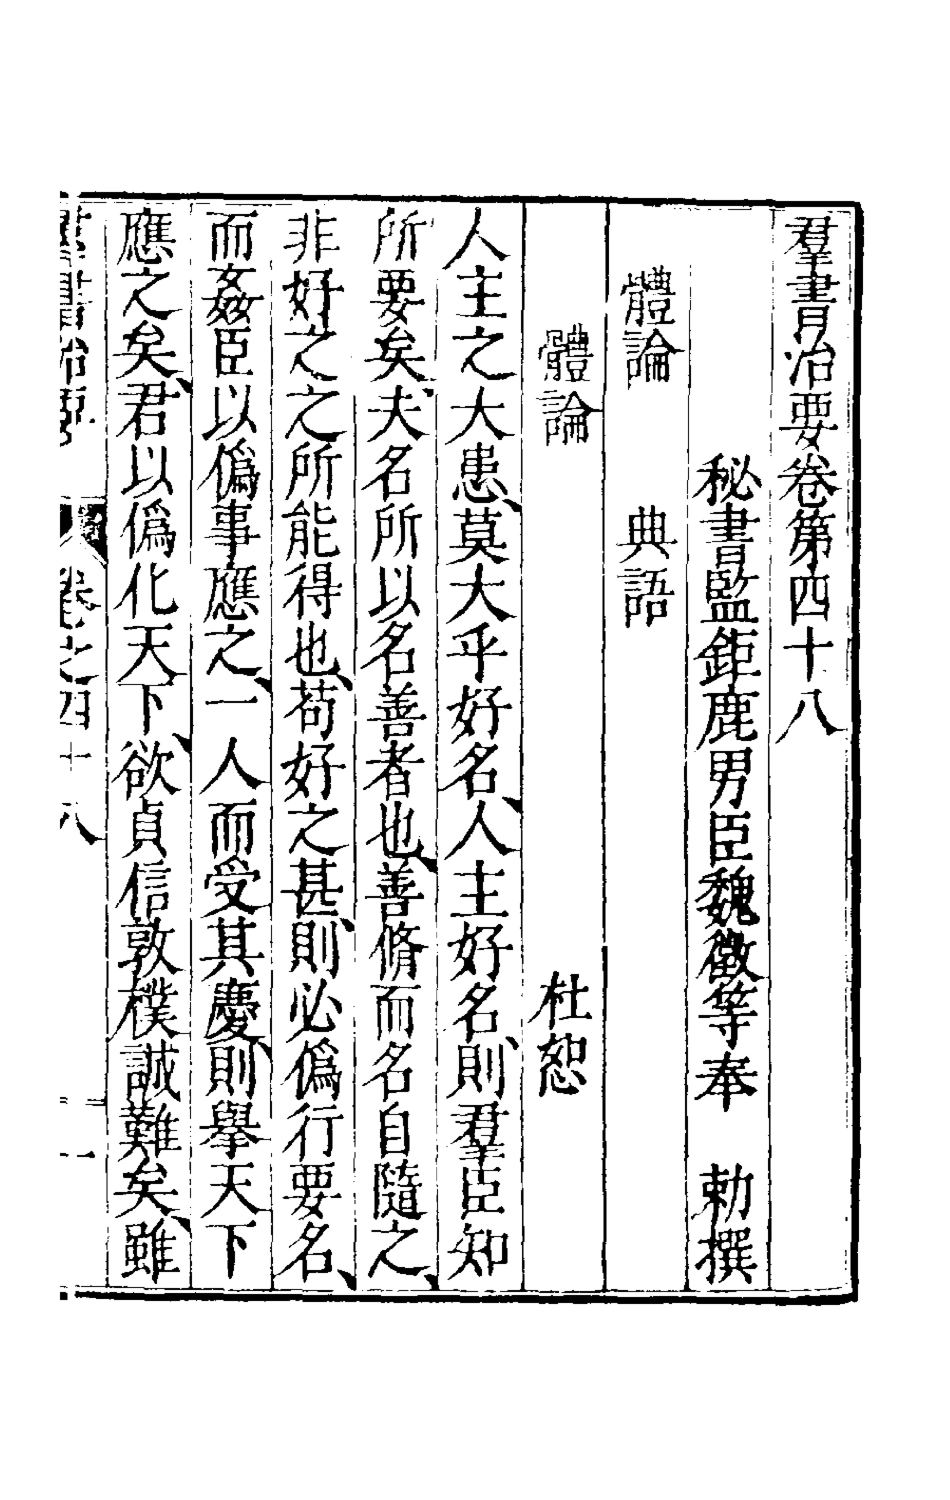 羣書治要卷第四十八
秘書監鉅鹿男臣魏徵等奉　勅撰
體論　典語
體論　杜恕
人主之大患、莫大乎好名、人主好名、則羣臣知
所要矣、夫名所以名善者也、善脩而名自隨之、
非好之之所能得也、苟好之甚、則必僞行要名、
而姦臣以僞事應之、一人而受其慶、則擧天下
應之矣、君以僞化天下、欲貞信敦樸誠難矣、雖
羣書治要　卷之四十八　一